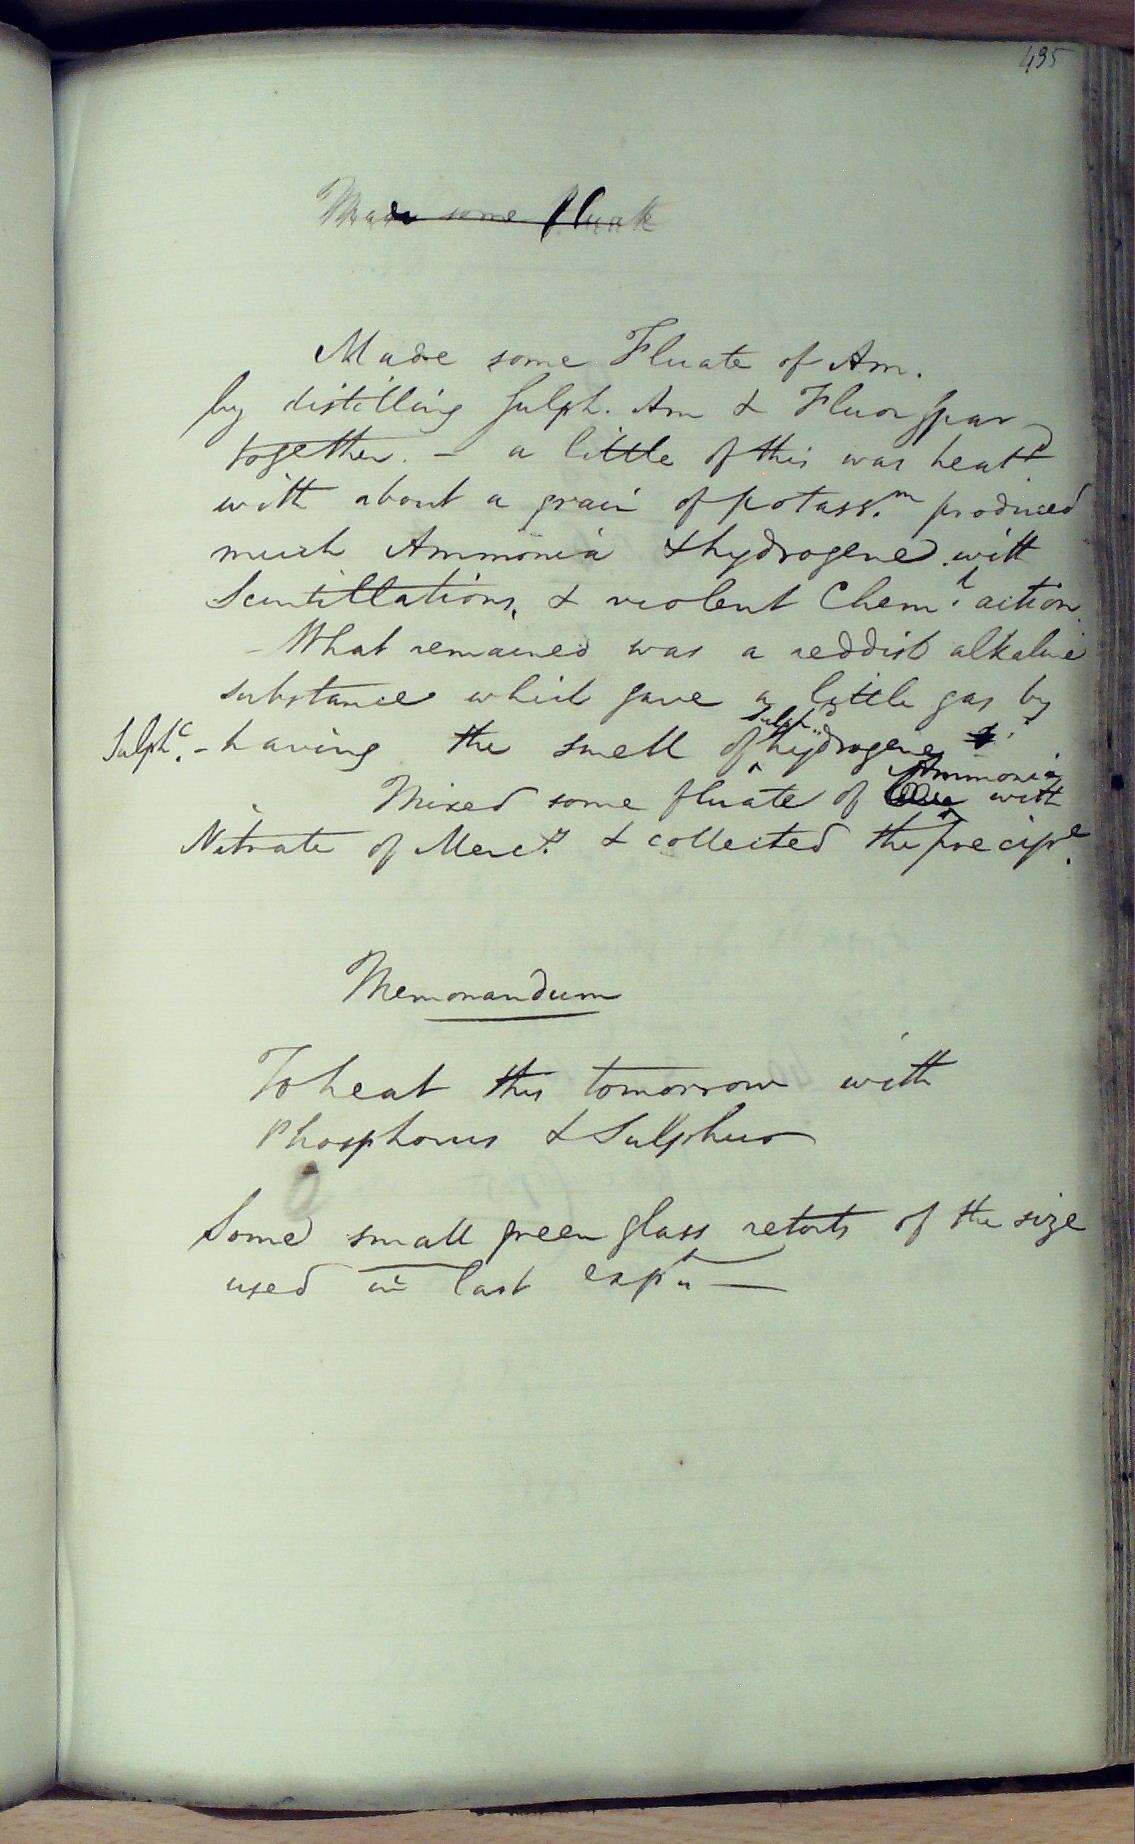 435
Made some Fluate
Made some Fluate of Am.
by distilling Sulph. Am & Fluor Spar
together. - a little of this was heatd
with about a grain of potass.m produced
much Ammonia & hydrogene with
Scintillations, & violent Chem.l action
- What remained was a reddish alkaline
substance which gave a little gas by
Sulphc. - having the smell of sulphd hydrogene
Mixed some fluate of Ammonia with
Nitrate of Merc.y & collected the precipe.
Memorandum
To heat this tomorrow with
Phosphorus & Sulphur
Some small green glass retorts of the size
used in last expn —